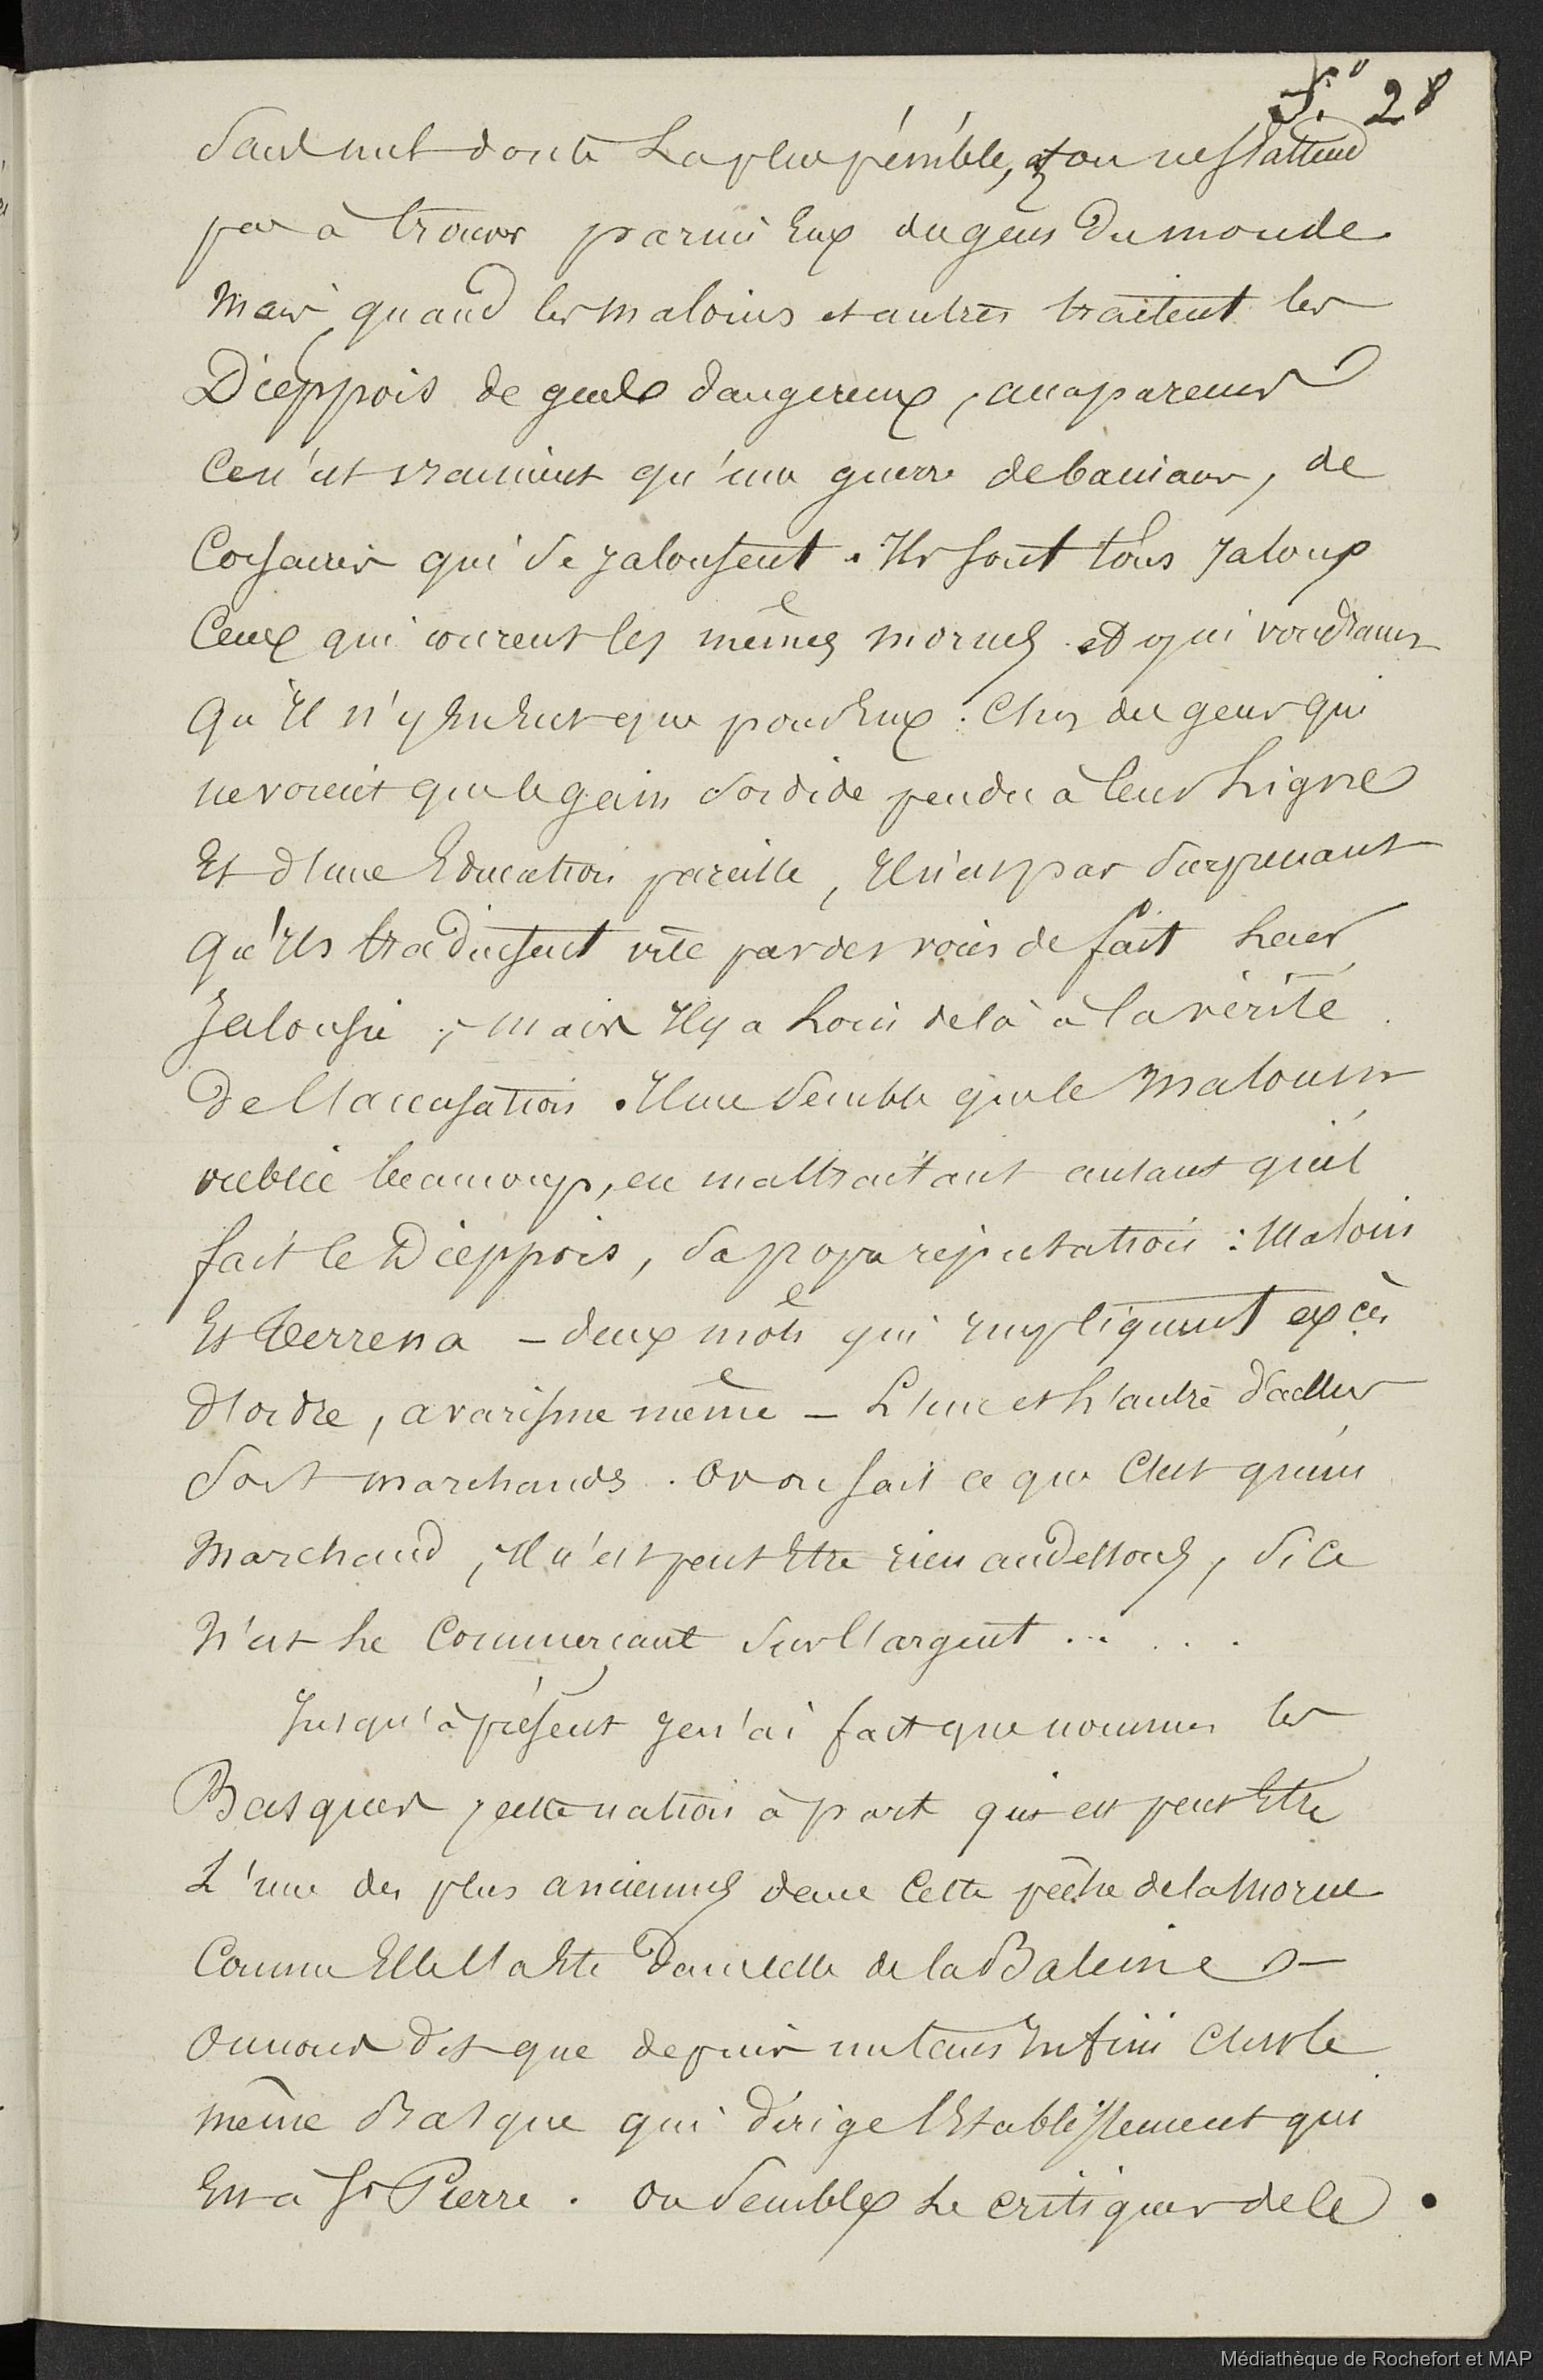 F.° 28
Sans nul doute La plus pénible, et on ne s'attend
pas à trouver parmi Eux des gens Du monde
Mais quand les Malouins et autres traitent les
Dieppois de gens dangereux, accapareurs
Ce n'est vraiment qu'une guerre de banians, de
Corsaires qui se jalousent. Ils sont tous Jaloux
Ceux qui courent les mêmes morues et qui voudraient
Qu'Il n'y En Eut que pour Eux. Chez des gens qui
ne voient que le gain Sordide pendu à leur Ligne
Et d'une Education pareille, Il n'est pas Surprenant
Qu'Ils traduisent vite par des voies de fait Leur
Jalousie, mais Il y a Loin de là à la vérité
De l'accusation. Il me Semble que le Malouin
oublie beaucoup, en maltraitant autant qu'il
fait le Dieppois, Sa propre réputation : Malouin
Et Terreneva – deux mots qui Impliquent excès
D'ordre, avarisme même – L'une et L'autre d'ailleurs
Sont marchands. Or on sait ce que C'est qu'un
Marchand, Il n'est peut Etre rien au dessous, Si Ce
N'est Le Commerçant Sur l'argent .....
Jusqu'à présent Je n'ai fait que nommer les
Basques, cette nation à part qui est peut Etre
L'une des plus anciennes dans Cette pêche de la Morue
Comme Elle l'a Eté Dans celle de la Baleine –
On nous dit que depuis un tems Infini C'est le
même Basque qui dirige l'Etablissement qui
Est à St Pierre. On Semble Le critiquer de le
Médiathèque de Rochefort et MAP